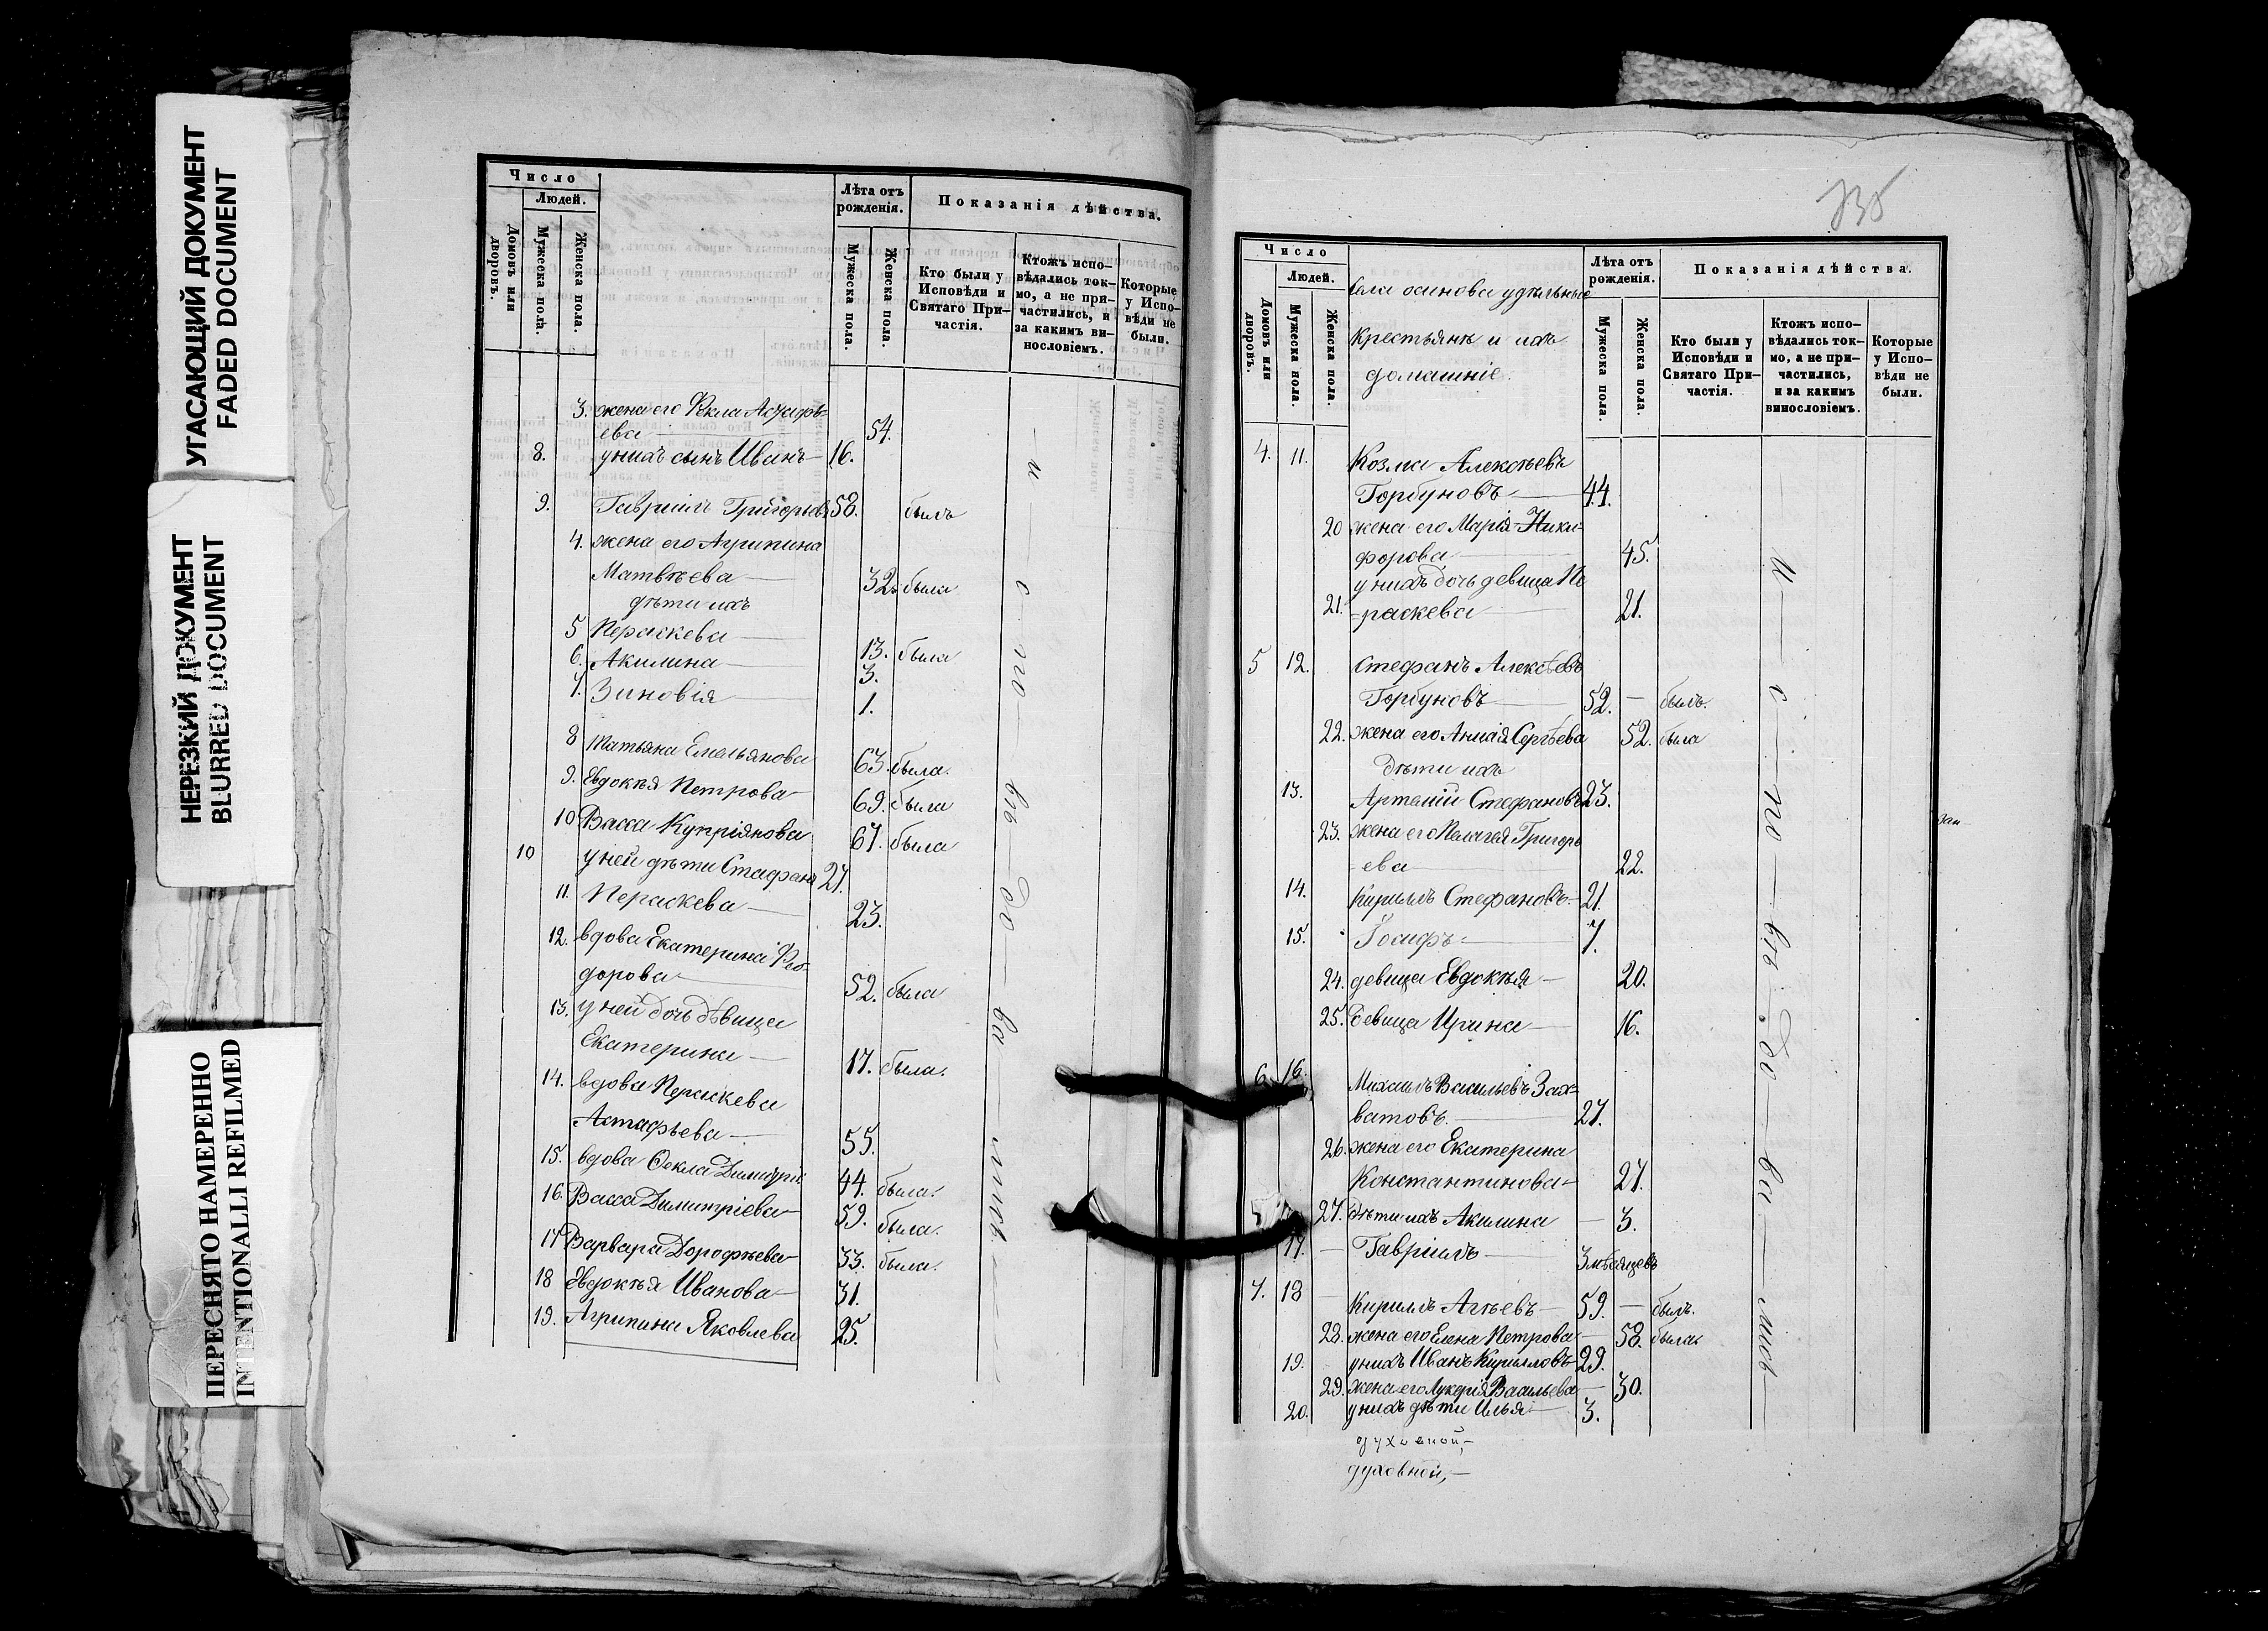 УГАСАЮЩИЙ ДОКУМЕНТ
FADED DOCUMENT
НЕРЕЗКИЙ ДОКУМЕНТ
BLURRED DOCUMENT
ПЕРЕСНЯТО НАМЕРЕННО
INTENTIONALLI REFILMED
Число
Людей.
Домовъ или дворовъ.
Мужеска пола.
Женска пола.
Лѣта отъ рожденія.
Мужеска пола.
Женска пола.
Показанія дѣйства.
Кто были у Исповѣди и Святаго Причастія.
Ктожъ исповѣдались токмо, а не причастились, и за какимъ винословіемъ.
Которые у Исповѣди не были.
3. жена его Ѳекла Астафь=
ева 54.
8. у нихъ сынъ Иванъ 16.
9. Гавріилъ Григорьевъ 58. былъ
4. жена его Агрипина
Матвѣева 32. была
дѣти ихъ
5 Пераскева 13. была
6. Акилина 3.
7. Зиновія 1.
8 Татьяна Емельянова 63. была.
9. Евдокѣя Петрова 69. была
10 Васса Купріянова 67. была
10 у ней дѣти Стефанъ 27.
11. Пераскева 23.
12. вдова Екатерина Ѳео-
дорова 52. была
13. у ней дочь дѣвица
Екатерина 17. была.
14. вдова Пераскева
Астафьева 55.
15. вдова Ѳекла Димитрі 44. была.
16. Васса Димитріева 59. была.
17 Варвара Дорофѣева 33. была.
18 Евдокѣя Иванова 31.
19. Агрипина Яковлева 25.
Число
Людей.
Домовъ или дворовъ.
Мужеска пола.
Женска пола.
Села осинова удѣльные
крестьянѣ и ихъ
домашніе.
Лѣта отъ рожденія.
Мужеска пола.
Женска пола.
Показанія дѣйства.
Кто были у Исповѣди и Святаго Причастія.
Ктожъ исповѣдались токмо, а не причастились, и за какимъ винословіемъ.
Которые у Исповѣди не были.
4. 11. Козма Алексѣевъ
Горбуновъ 44.
20 жена его Марія Ники=
форова 45.
у нихъ дочь девица Пе
21. -раскева 21.
5 12. Стефанъ Алексѣевъ
Горбуновъ 52. — былъ.
22. жена его Анисія Сергѣева 52. была
Дѣти ихъ
13. Артемій Стефановъ 23.
23. жена его Пелагея Григорь
-ева 22.
14. Кирилъ Стефановъ 21.
15. Іосифъ 7.
24. девица Евдокѣя 20.
25. девица Ирина 16.
6. 16. Михаилъ Васильевъ Зах=
ватовъ. 27.
26. жена его Екатерина
Константинова 27.
27. Дѣти ихъ Акилина — 3.
17. — Гавріилъ 3 мѣсяцевъ
7. 18 — Кирилъ Агѣевъ 59. — былъ.
28. жена его Елена Петрова — 58. была.
19. у нихъ Иванъ Кириловъ 29.
29. жена его Лукерія Васильева — 30.
20. у нихъ дѣти Илья 3.
духовной,-
духовной,-